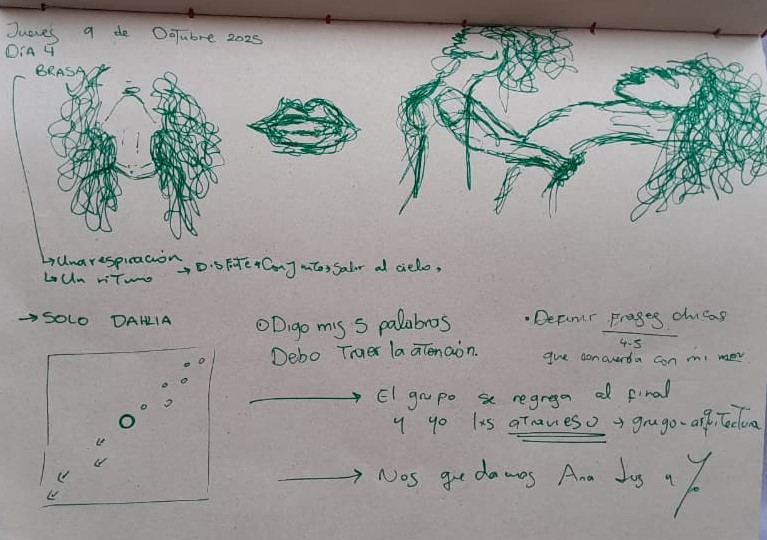 Jueves 9 de Octubre 2025
DIA 4
BRASA
↳ Una respiración
↳ Un ritmo → Disfrute + Conjunto, Salir al cielo.
→ SOLO DAHLIA
⊙ Digo mis 5 palabras
Debo Traer la atención.
• Definir frases chicas
4-5
que concuerda con mi mov.
→ El grupo se regresa al final
y yo lxs atravieso → grego-arquitectura
→ Nos quedamos Ana Luz a